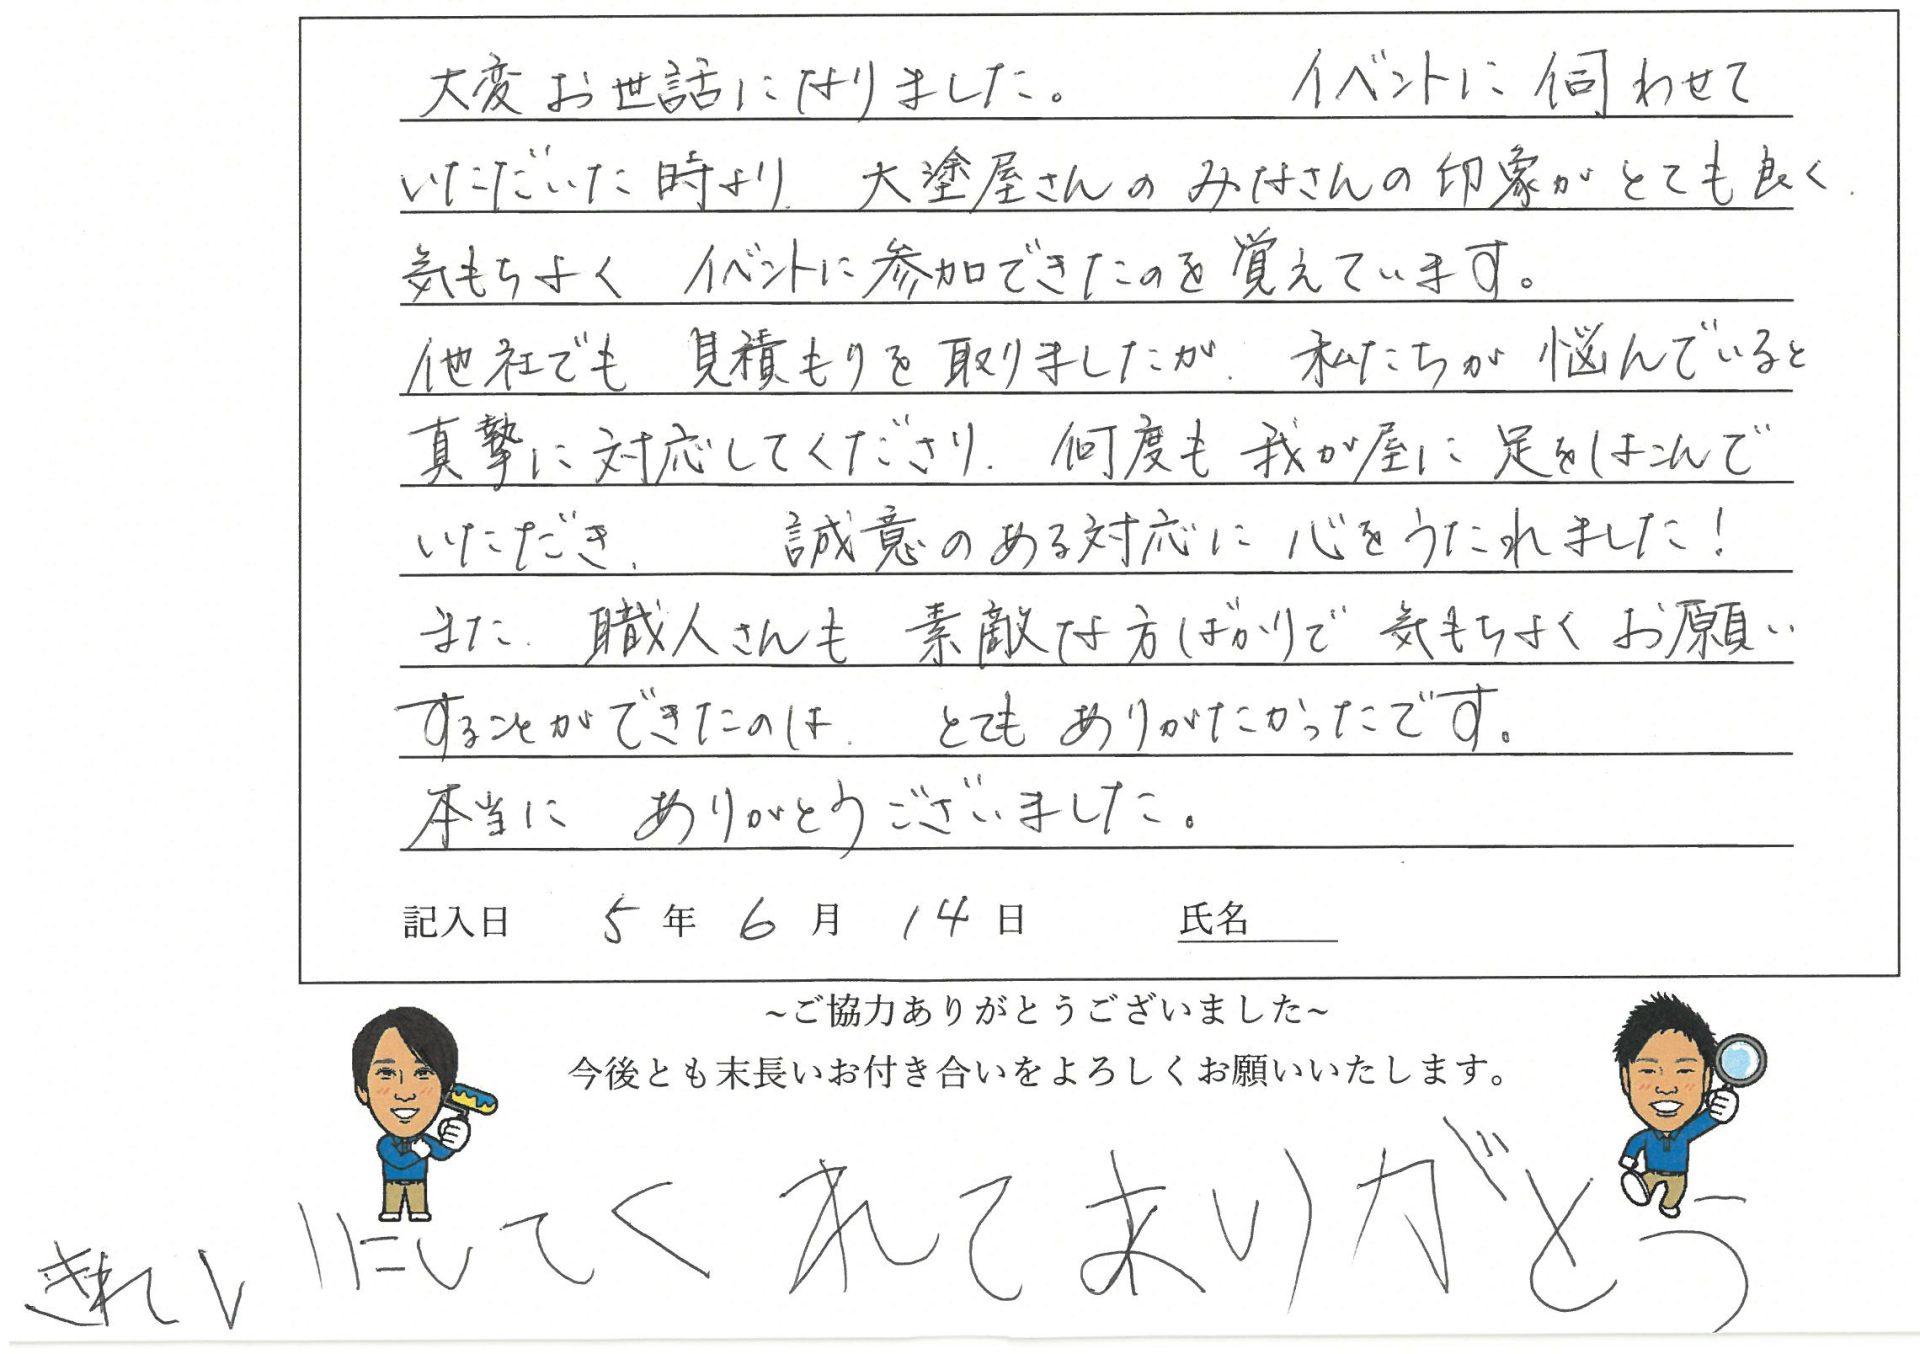 大変お世話になりました。　イベントに伺わせて
いただいた時より、大塗屋さんのみなさんの印象がとても良く、
気もちよく イベントに参加できたのを覚えています。
他社でも 見積もりを取りましたが、私たちが 悩んでいると
真摯に対応してくださり、何度も 我が屋に 足をはこんで
いただき、 誠意のある対応に 心をうたれました!
また、職人さんも 素敵な方ばかりで 気もちよく お願い
することができたのは、とても ありがたかったです。
本当に ありがとうございました。
記入日 5年6月14日 氏名
~ご協力ありがとうございました~
今後とも末長いお付き合いをよろしくお願いいたします。
きれいにしてくれてありがとう